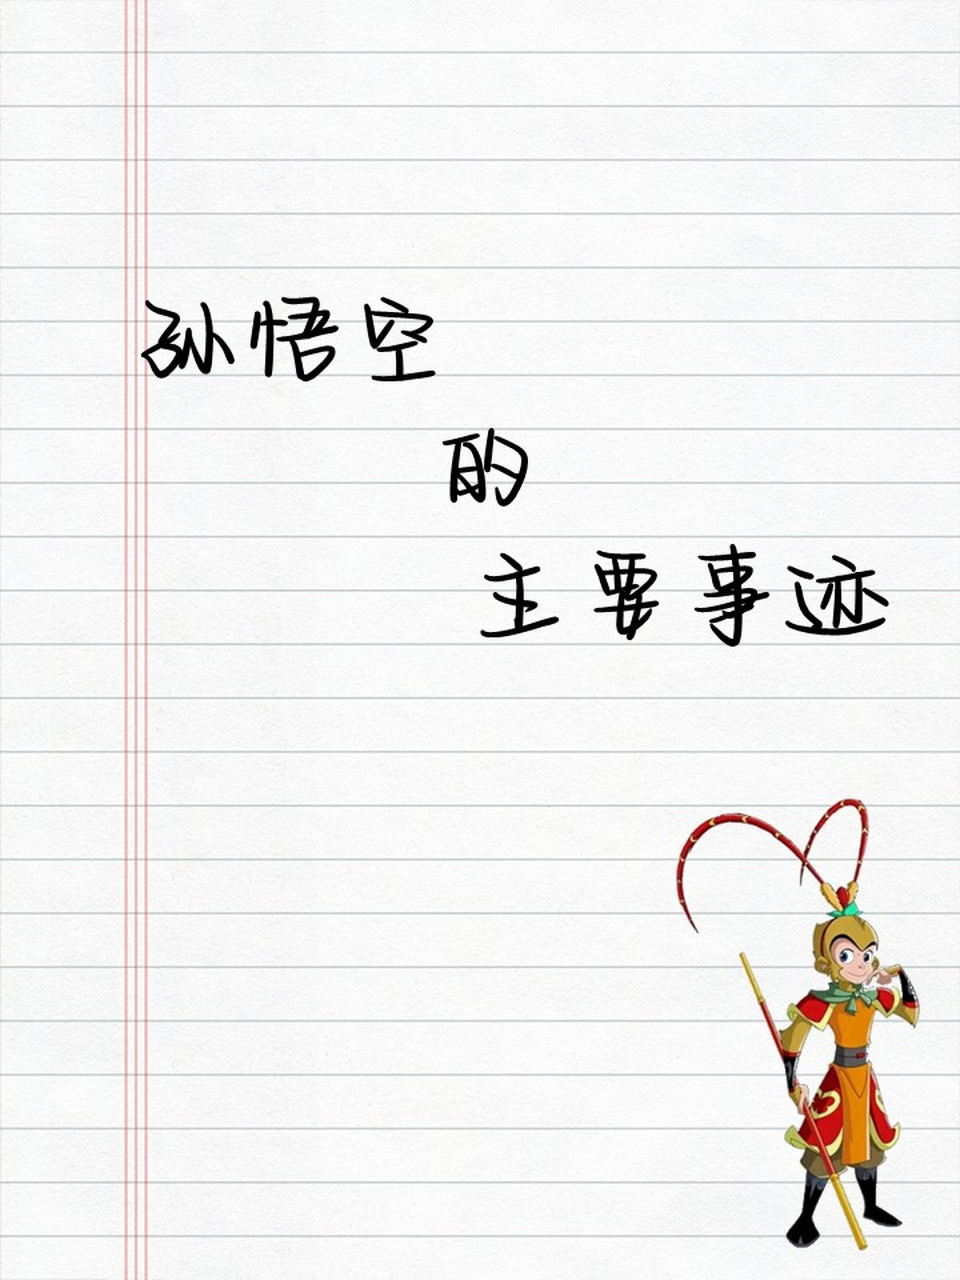 孙悟空
的
主要事迹